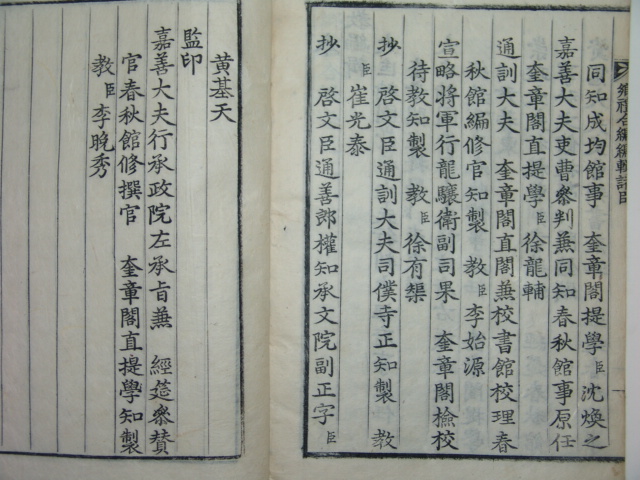 鄉禮合編編輯諸臣
同知成均館事　奎章閣提學臣沈煥之
嘉善大夫吏曹叅判兼同知春秋館事原任
奎章閣直提學臣徐龍輔
通訓大夫　奎章閣直閣兼校書館校理春
秋館編修官知製　教臣李始源
宣略將軍行龍驤衛副司果　奎章閣檢校
待教知製　教臣徐有榘
抄　啓文臣通訓大夫司僕寺正知製　教
臣崔光泰
抄　啓文臣通善郎權知承文院副正字臣
黃基天
監印
嘉善大夫行承政院左承旨兼　經筵叅贊
官春秋館修撰官　奎章閣直提學知製
教臣李晚秀